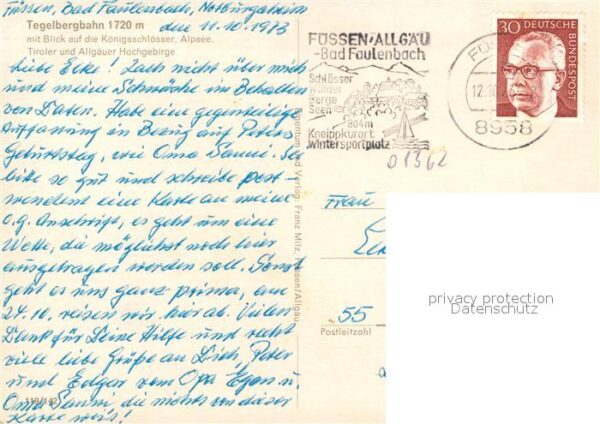 Füssen, Bad Faulenbach, Notburgaheim
den 11.10.1973
Tegelbergbahn 1720 m
mit Blick auf die Königsschlösser, Alpsee,
Tiroler und Allgäuer Hochgebirge
Liebe Elke! Lach nicht über mich
und meine Schwäche im Behalten
von Daten. Habe eine gegenteilige
Auffassung in Bezug auf Peters
Geburtstag, wie Oma Sanni. Sei
bitte so gut und schreibe post-
wendend eine Karte an meine
o.g. Anschrift, es geht um eine
Wette, die möglichst noch hier
ausgetragen werden soll. Sonst
geht es uns ganz prima, am
24.10. reisen wir hier ab. Vielen
Dank für Deine Hilfe und recht
viele liebe Grüße an Dich, Peter
und Edgar vom Opa Egon u.
Oma Sanni die nichts von dieser
Karte weiß!
110/142
Agentur und Verlag Franz Milz, Füssen/Allgäu
FÜSSEN/ALLGÄU
-Bad Faulenbach
Schlösser
Wälder
Berge
Seen
804m
Kneippkurort
Wintersportplatz
FÜ
12.10
8958
30 DEUTSCHE
BUNDESPOST
01362
Frau
55
Postleitzahl
privacy protection
Datenschutz